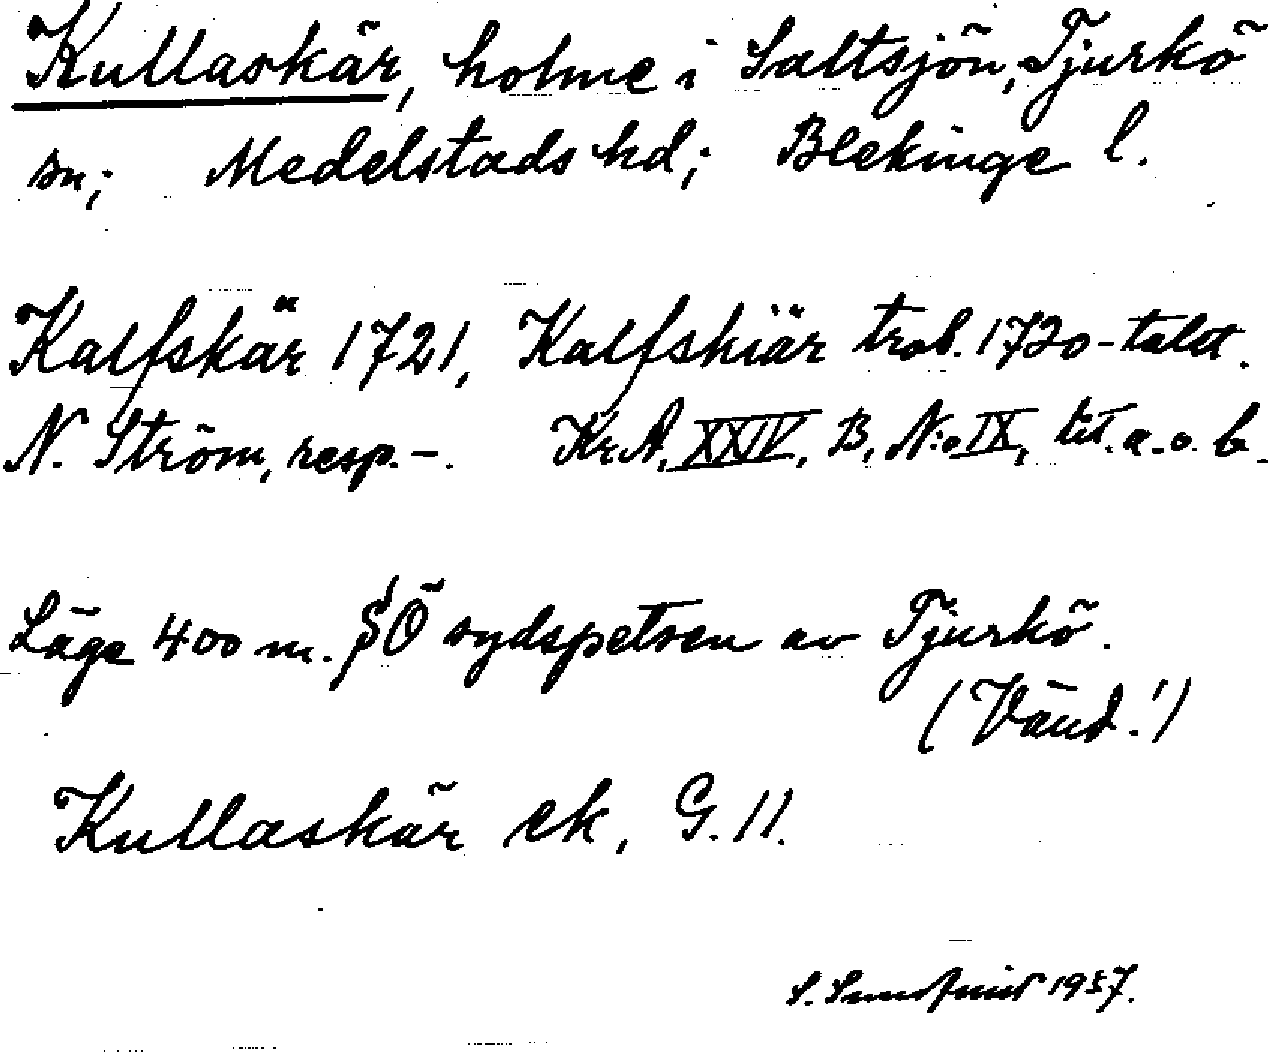 Kullaskär, holme i Saltsjön, Tjurkö
sn; Medelstads hd; Blekinge l.
Kalfskär 1721, Kalfskiär trol. 1720-talet.
N. Ström, resp. -. Kr.A, XXIV, B, N:o IX, litt. a. o. b.
Läge 400 m. SÖ sydspetsen av Tjurkö.
(Vänd!)
Kullaskär ek, G. 11.
S. 1957.